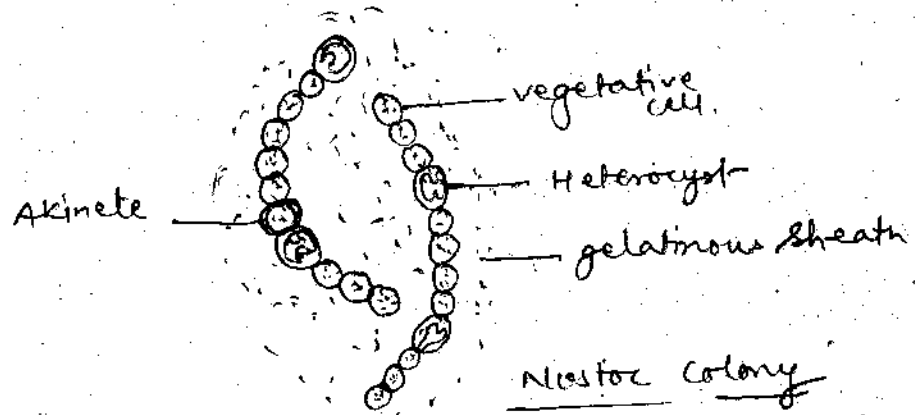 vegetative
cell.
Heterocyst
Akinete
gelatinous sheath
Nostoc Colony